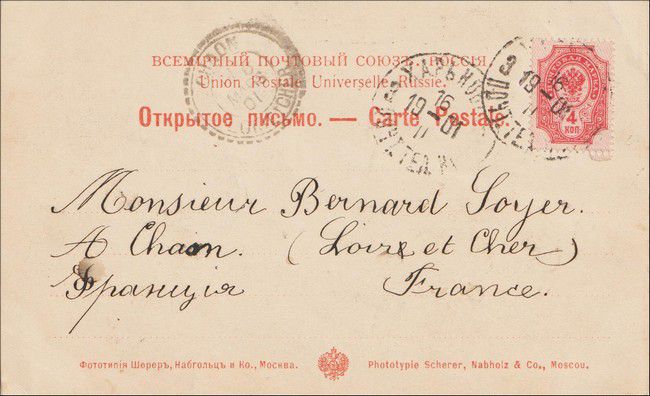 ВСЕМІРНЫЙ ПОЧТОВЫЙ СОЮЗЪ. РОССІЯ.
Union Postale Universelle. Russie.
Открытое письмо. — Carte Postale.
4
КОП.
16
19 01
Monsieur Bernard Soyer.
A Chaon. (Loir et Cher)
Франція France.
Фототипія Шереръ, Набгольцъ и Ко., Москва.
Phototypie Scherer, Nabholz & Co., Moscou.